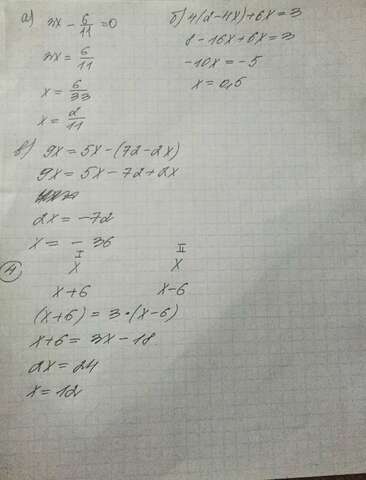 а) 3x - 6/11 = 0
3x = 6/11
x = 6/33
x = 2/11
б) 4(2-4x)+6x=3
8-16x+6x=3
-10x=-5
x=0,5
в) 9x=5x-(72-2x)
9x=5x-72+2x
2x=-72
x=-36
I II
x x
x+6 x-6
(x+6)=3·(x-6)
x+6=3x-18
2x=24
x=12